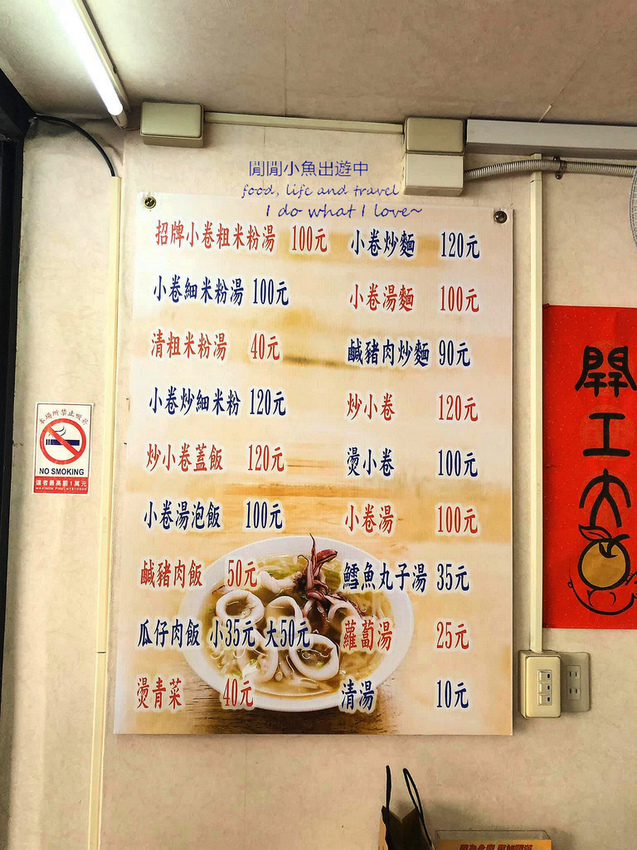 閒閒小魚出遊中
food, life and travel
I do what I love~
招牌小卷粗米粉湯 100元
小卷細米粉湯 100元
清粗米粉湯 40元
小卷炒細米粉 120元
炒小卷蓋飯 120元
小卷湯泡飯 100元
鹹豬肉飯 50元
瓜仔肉飯 小35元 大50元
燙青菜 40元
小卷炒麵 120元
小卷湯麵 100元
鹹豬肉炒麵 90元
炒小卷 120元
燙小卷 100元
小卷湯 100元
鱈魚丸子湯 35元
蘿蔔湯 25元
清湯 10元
本場所禁止吸菸
NO SMOKING
違者最高罰1萬元
開工大